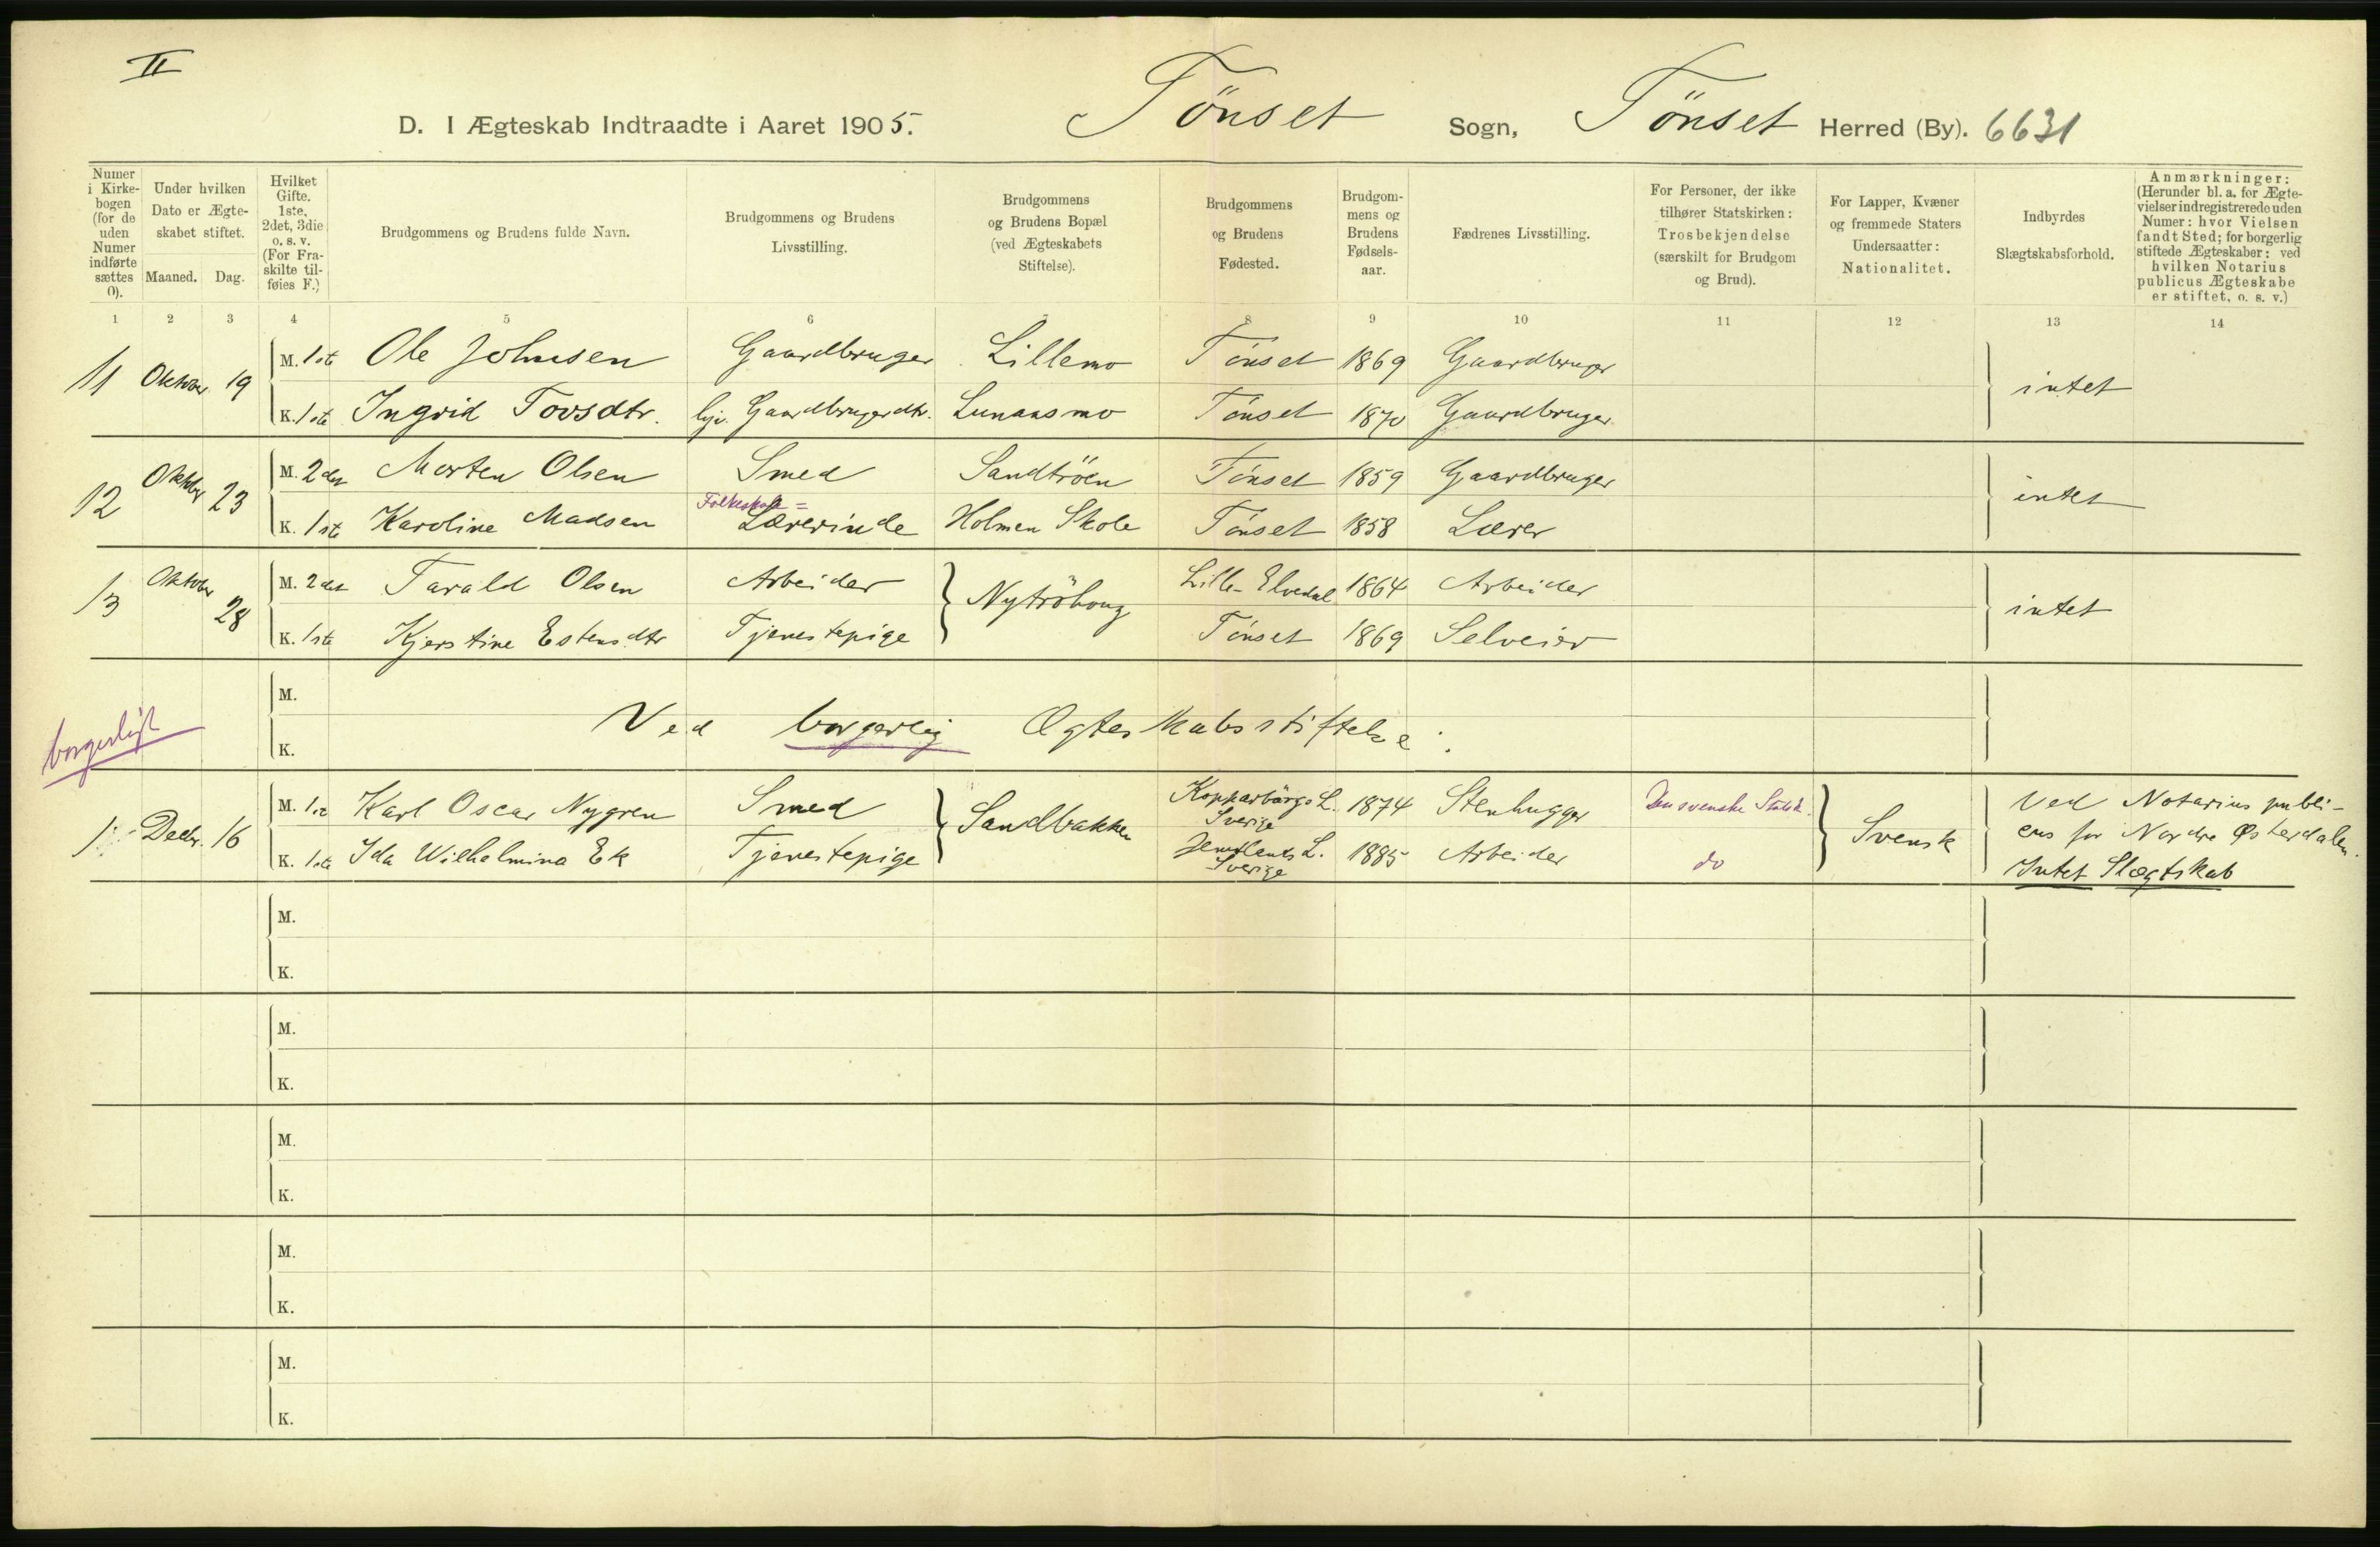 II
D. I Ægteskab Indtraadte i Aaret 1905. Tönset Sogn, Tönset Herred (By). 6631
Numer i Kirke-bogen (for de uden Numer indførte sættes 0).
Under hvilken Dato er Ægte-skabet stiftet.
Maaned. Dag.
Hvilket Gifte. 1ste, 2det, 3die o. s. v. (For Fra-skilte til-føies F.)
Brudgommens og Brudens fulde Navn.
Brudgommens og Brudens Livsstilling.
Brudgommens og Brudens Bopæl (ved Ægteskabets Stiftelse).
Brudgommens og Brudens Fødested.
Brudgom-mens og Brudens Fødsels-aar.
Fædrenes Livsstilling.
For Personer, der ikke tilhører Statskirken: Trosbekjendelse (særskilt for Brudgom og Brud).
For Lapper, Kvæner og fremmede Staters Undersaatter: Nationalitet.
Indbyrdes Slægtskabsforhold.
Anmærkninger: (Herunder bl. a. for Ægte-vielser indregistrerede uden Numer: hvor Vielsen fandt Sted; for borgerlig stiftede Ægteskaber: ved hvilken Notarius publicus Ægteskabe er stiftet, o. s. v.)
1 2 3 4 5 6 7 8 9 10 11 12 13 14
11 Oktober 19 M. 1ste Ole Johnsen Gaardbruger Lillemo Tönset 1869 Gaardbruger intet
K. 1ste Ingrid Tovsdtr. Gaardbrugerdtr. Lunaasmo Tönset 1870 Gaardbruger
12 Oktober 23 M. 2det Morten Olsen Smed Sandtröen Tönset 1859 Gaardbruger intet
K. 1ste Karoline Madsen Folkeskole= Lærerinde Holmen Skole Tönset 1858 Lærer
13 Oktober 28 M. 2det Tarald Olsen Arbeider Nytröhoug Lille-Elvedal 1864 Arbeider intet
K. 1ste Kjerstine Estensdtr Tjenestepige Tönset 1869 Selveier
borgerligt
M.
Ved borgerlig Ægteskabsstiftelse.
K.
1 Decbr. 16 M. 1ste Karl Oscar Nygren Smed Sandbakken Kopparbärgs L. Sverige 1874 Stenhugger Den svenske Statsk. Svensk Ved Notarius publi-
cus for Nordre Østerdalen.
K. 1ste Ida Wilhelmina Ek Tjenestepige Jemtlands L. Sverige 1885 Arbeider do Intet Slægtskab
M.
K.
M.
K.
M.
K.
M.
K.
M.
K.